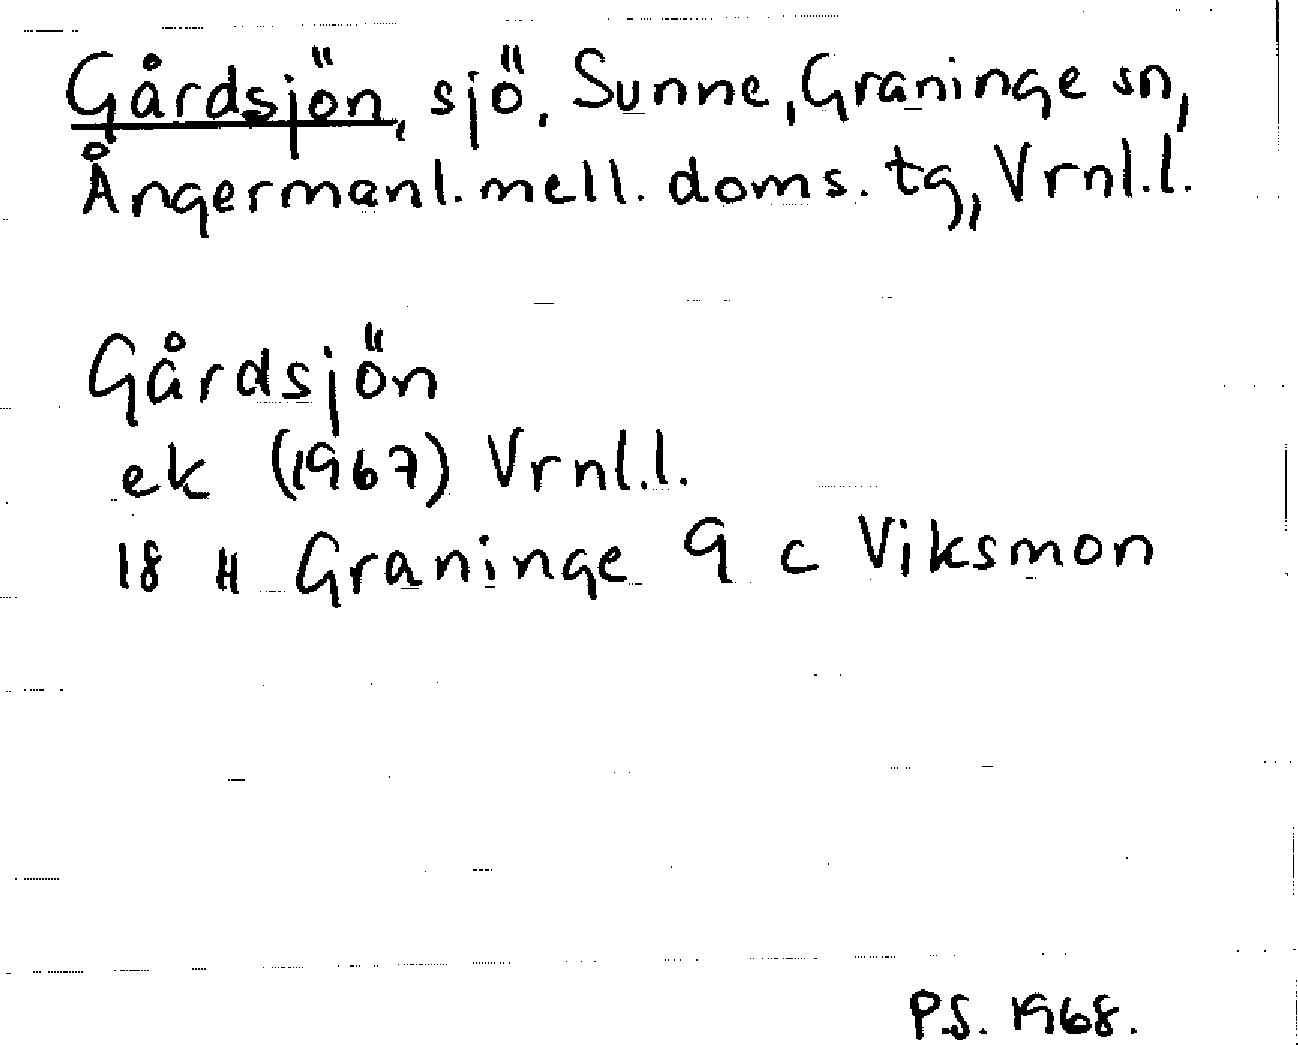 Gårdsjön, sjö, Sunne, Graninge sn,
Ångermanl. mell. doms. tg, Vrnl.l.
Gårdsjön
ek (1967) Vrnl.l.
18 H Graninge 9 c Viksmon
P.S. 1968.